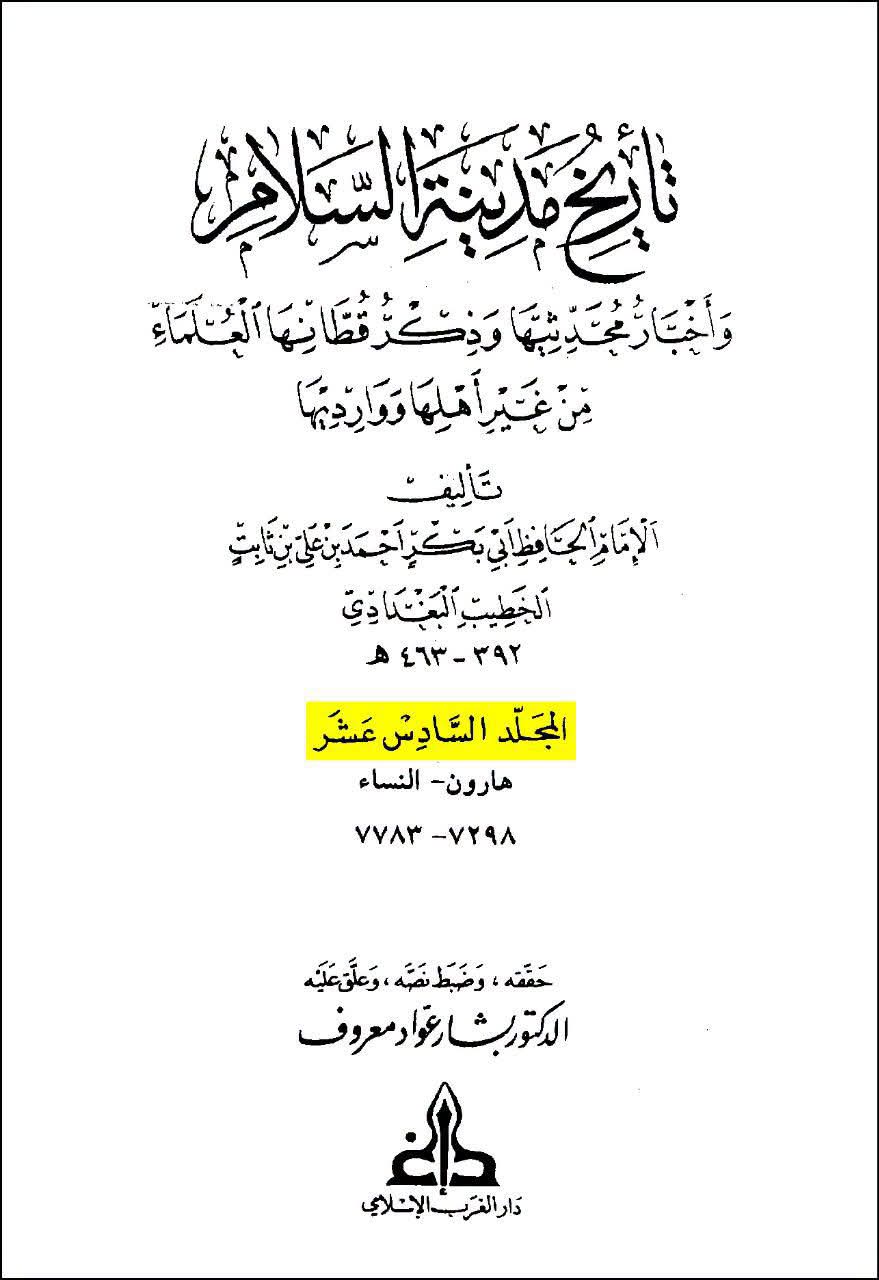 تَأرِيخُ مَدِينَةِ السَّلَامِ
وَأَخْبَارُ مُحَدِّثِيهَا وَذِكْرُ قُطَّانِهَا ٱلْعُلَمَاءِ
مِنْ غَيْرِ أَهْلِهَا وَوَارِدِيهَا
تَأليف
ٱلْإِمَامِ ٱلْحَافِظِ أَبِي بَكْرٍ أَحْمَدَ بْنِ عَلِيِّ بْنِ ثَابِتٍ
ٱلْخَطِيبِ ٱلْبَغْدَادِيِّ
٣٩٢ - ٤٦٣ هـ
المجَلّد السَّادِسْ عَشَر
هارون - النساء
٧٢٩٨ - ٧٧٨٣
حَقّقه ، وَضَبَط نَصَّه ، وَعَلَّق عَلَيْه
الدكتور بشار عوّاد معروف
دَار الغَرب الإسْلامي